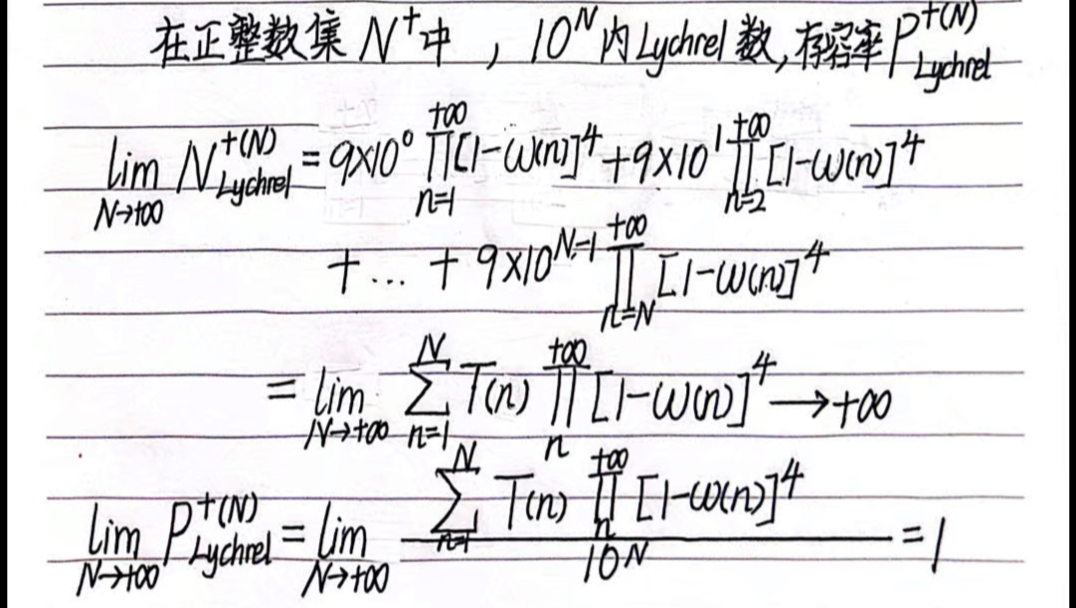 在正整数集 N⁺中，10ᴺ内Lychrel数,存容率 P_{Lychrel}^{+(N)}
\lim_{N→+∞} N_{Lychrel}^{+(N)} = 9×10⁰ \prod_{n=1}^{+∞}[1-ω(n)]⁴ + 9×10¹ \prod_{n=2}^{+∞}[1-ω(n)]⁴
+ ... + 9×10^{N-1} \prod_{n=N}^{+∞}[1-ω(n)]⁴
= \lim_{N→+∞} \sum_{n=1}^{N} T(n) \prod_{n}^{+∞}[1-ω(n)]⁴ → +∞
\lim_{N→+∞} P_{Lychrel}^{+(N)} = \lim_{N→+∞} \frac{\sum_{n=1}^{N} T(n) \prod_{n}^{+∞}[1-ω(n)]⁴}{10^N} = 1